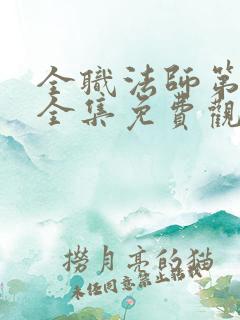 全職法師第
全集免費觀
撈月亮的猫
未经同意禁止转载